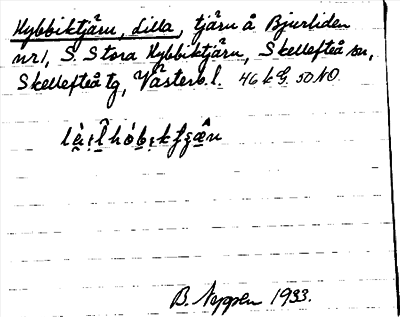 Hybbiktjärn, Lilla, tjärn å Bjurliden
nr 1, S. Stora Hybbiktjärn, Skellefteå sn,
Skellefteå tg, Västerb. l. 46 k G. 50 NO.
B. Nyqvist 1933.